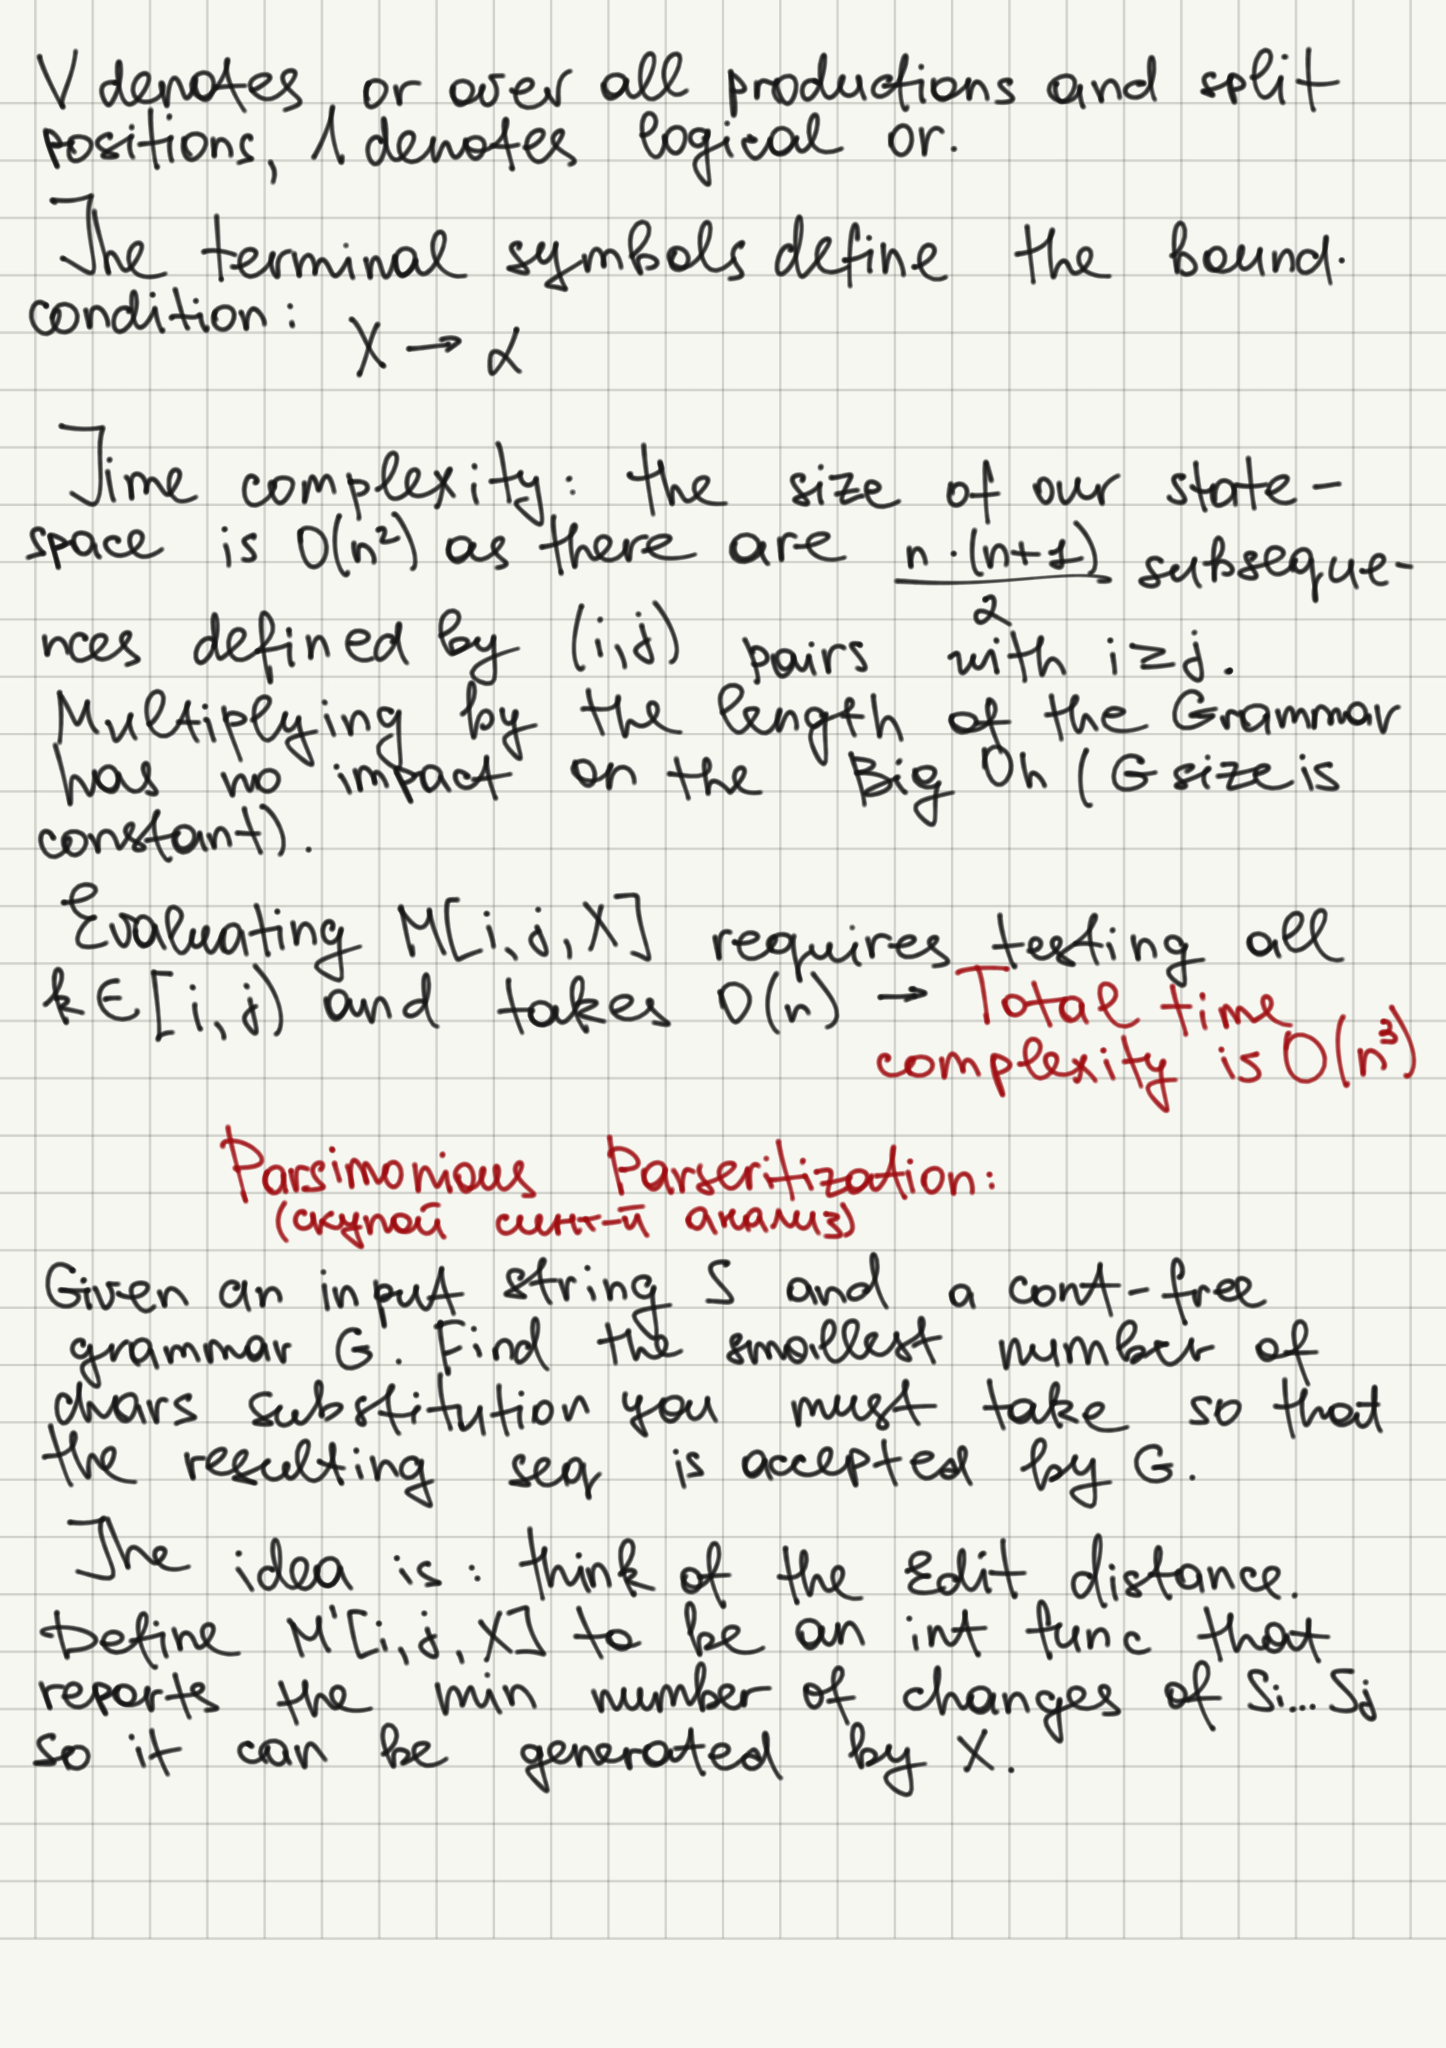 V denotes or over all productions and split
positions, Λ denotes logical or.
The terminal symbols define the bound.
condition: X → α
Time complexity: the size of our state-
space is O(n²) as there are n·(n+1)/2 subseque-
nces defined by (i,j) pairs with i≥j.
Multiplying by the length of the Grammar
has no impact on the Big Oh (G size is
constant).
Evaluating M[i,j,X] requires testing all
k∈[i,j) and takes O(n) → Total time
complexity is O(n³)
Parsimonious Parseritization:
(скупой синт-й анализ)
Given an input string S and a cont-free
grammar G. Find the smallest number of
chars substitution you must take so that
the resulting seq is accepted by G.
The idea is: think of the Edit distance.
Define M'[i,j,X] to be an int func that
reports the min number of changes of Si...Sj
so it can be generated by X.